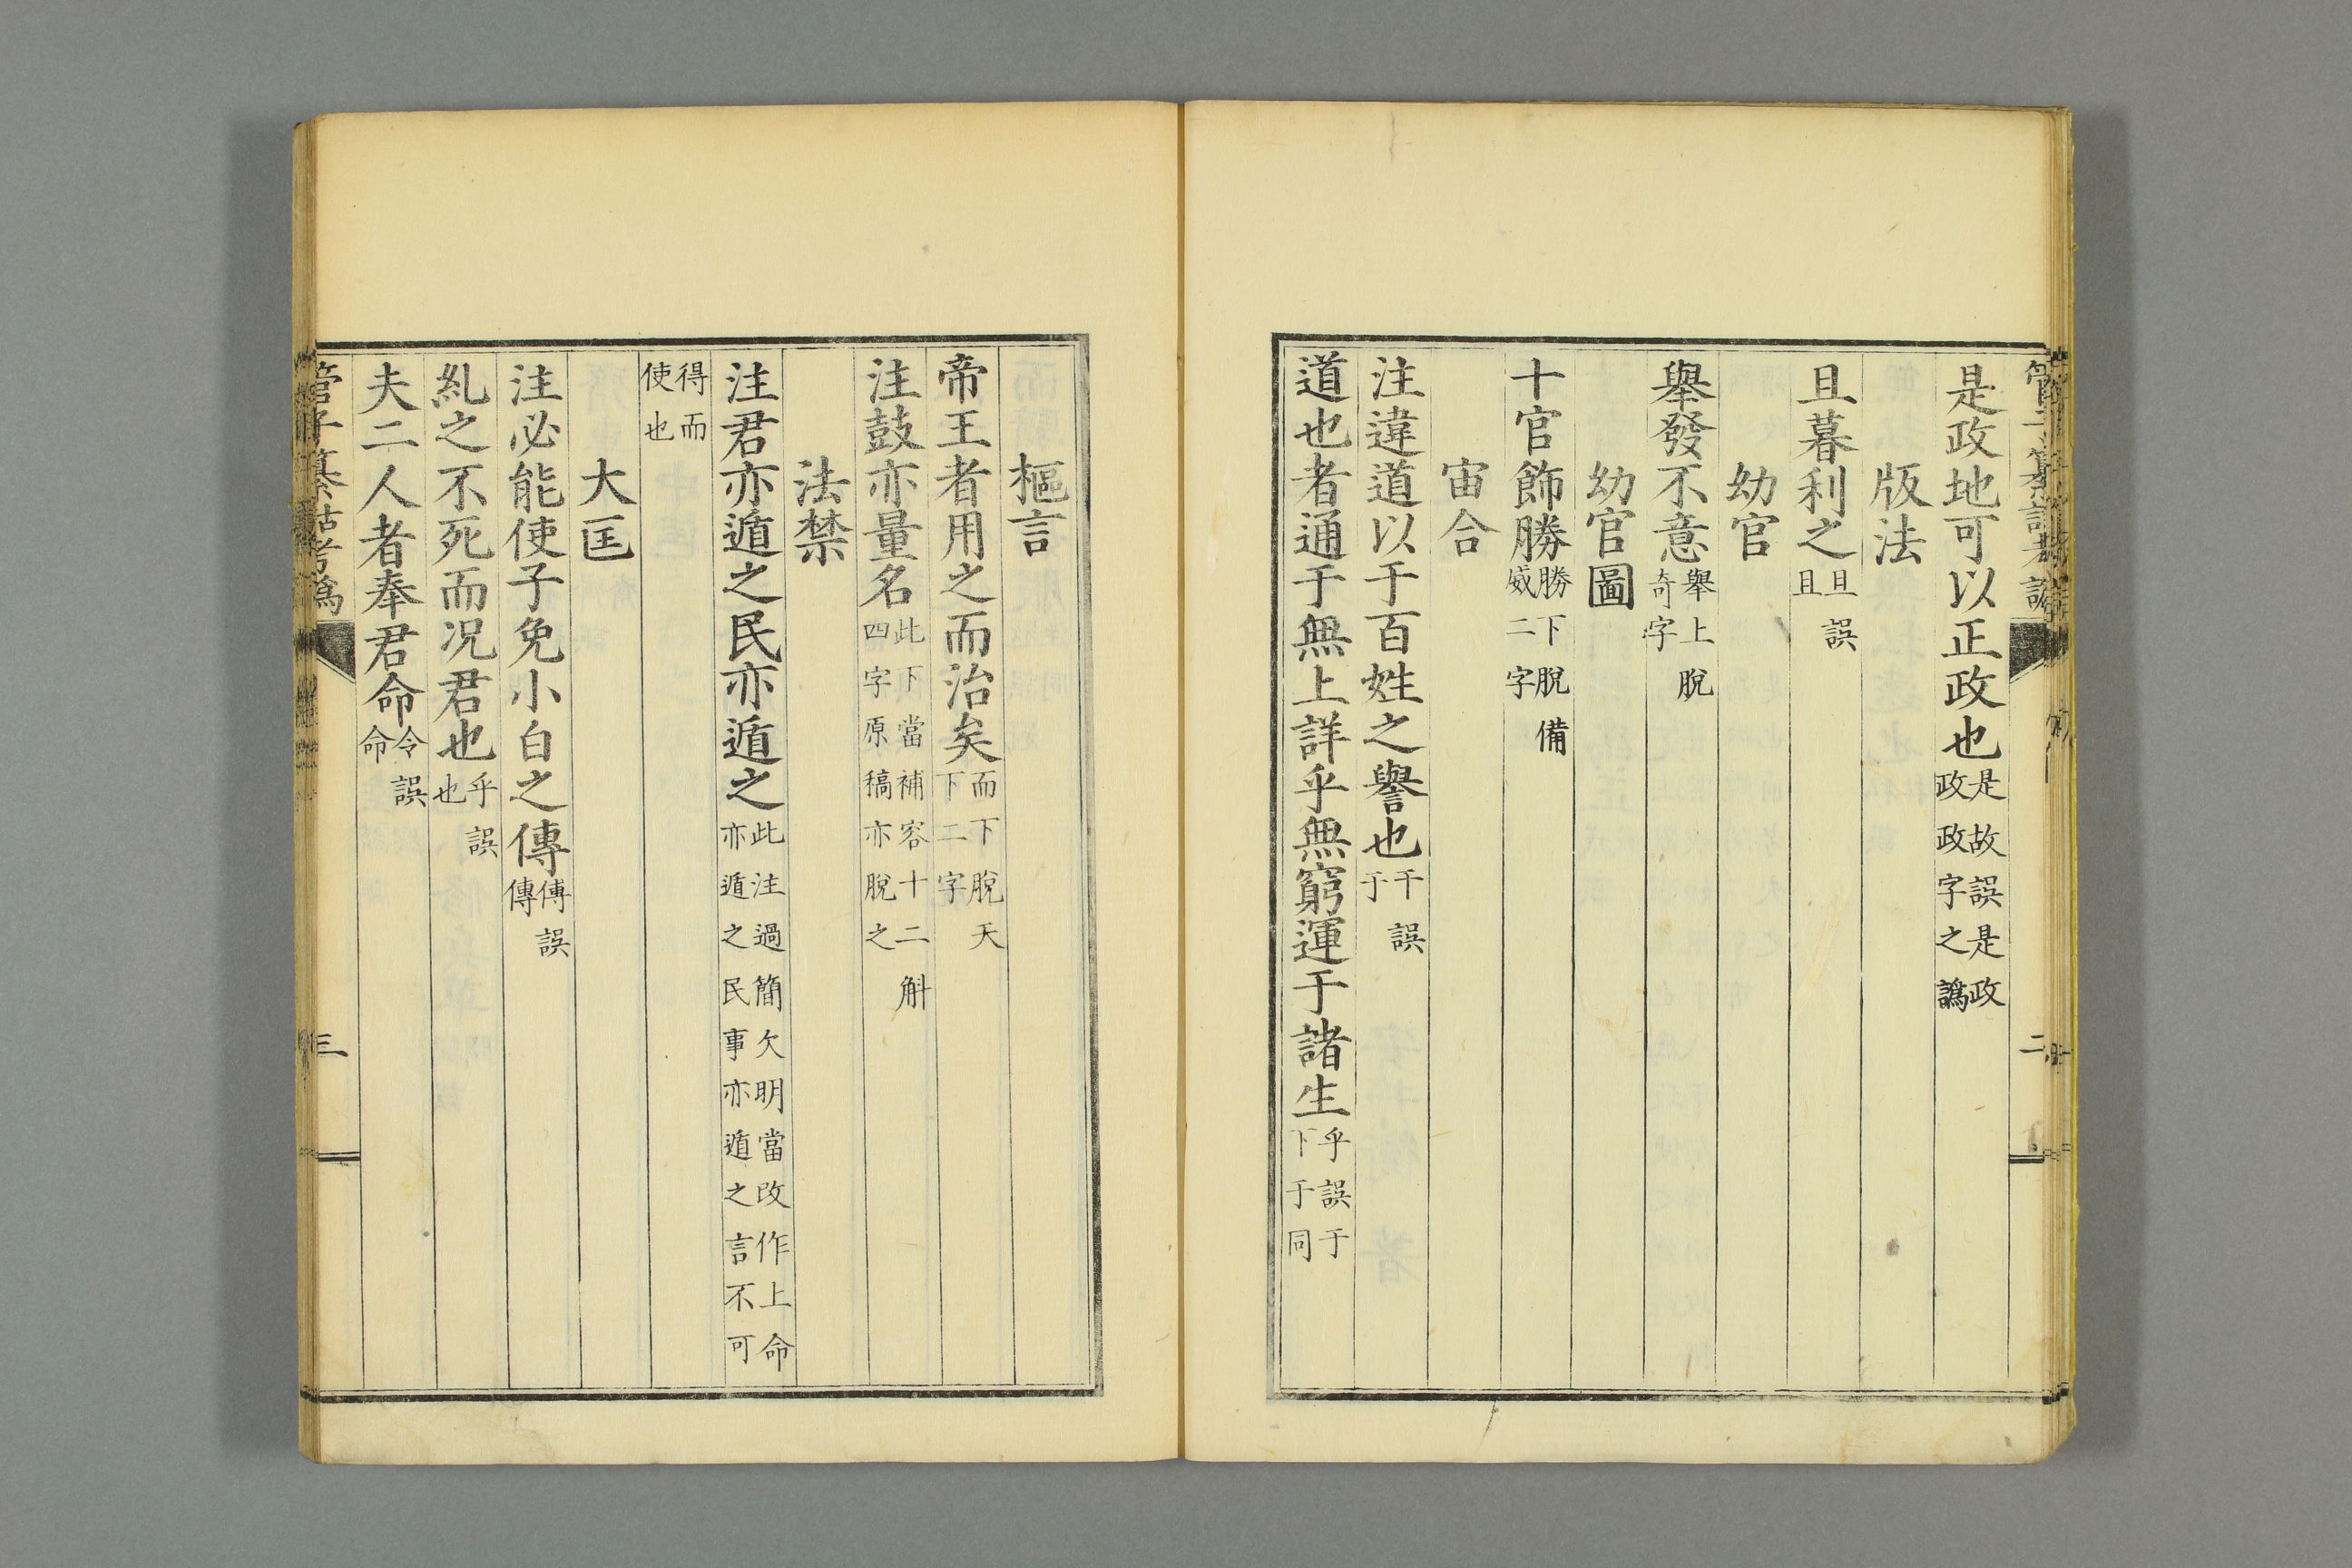 是政地可以正政也是故誤是政政政字之譌
版法
且暮利之旦誤且
幼官
舉發不意舉上脫奇字
幼官圖
十官飾勝勝下脫備威二字
宙合
注違道以于百姓之譽也干誤于
道也者通于無上詳乎無窮運于諸生乎誤于下于同
二
樞言
帝王者用之而治矣而下脫天下二字
注鼓亦量名此下當補容十二斛四字原稿亦脫之
法禁
注君亦遁之民亦遁之此注過簡欠明當改作上命亦遁之民事亦遁之言不可
得而使也
大匡
注必能使子免小白之傳傅誤傳
糺之不死而况君也乎誤也
夫二人者奉君命令誤命
管子纂詁考譌
三